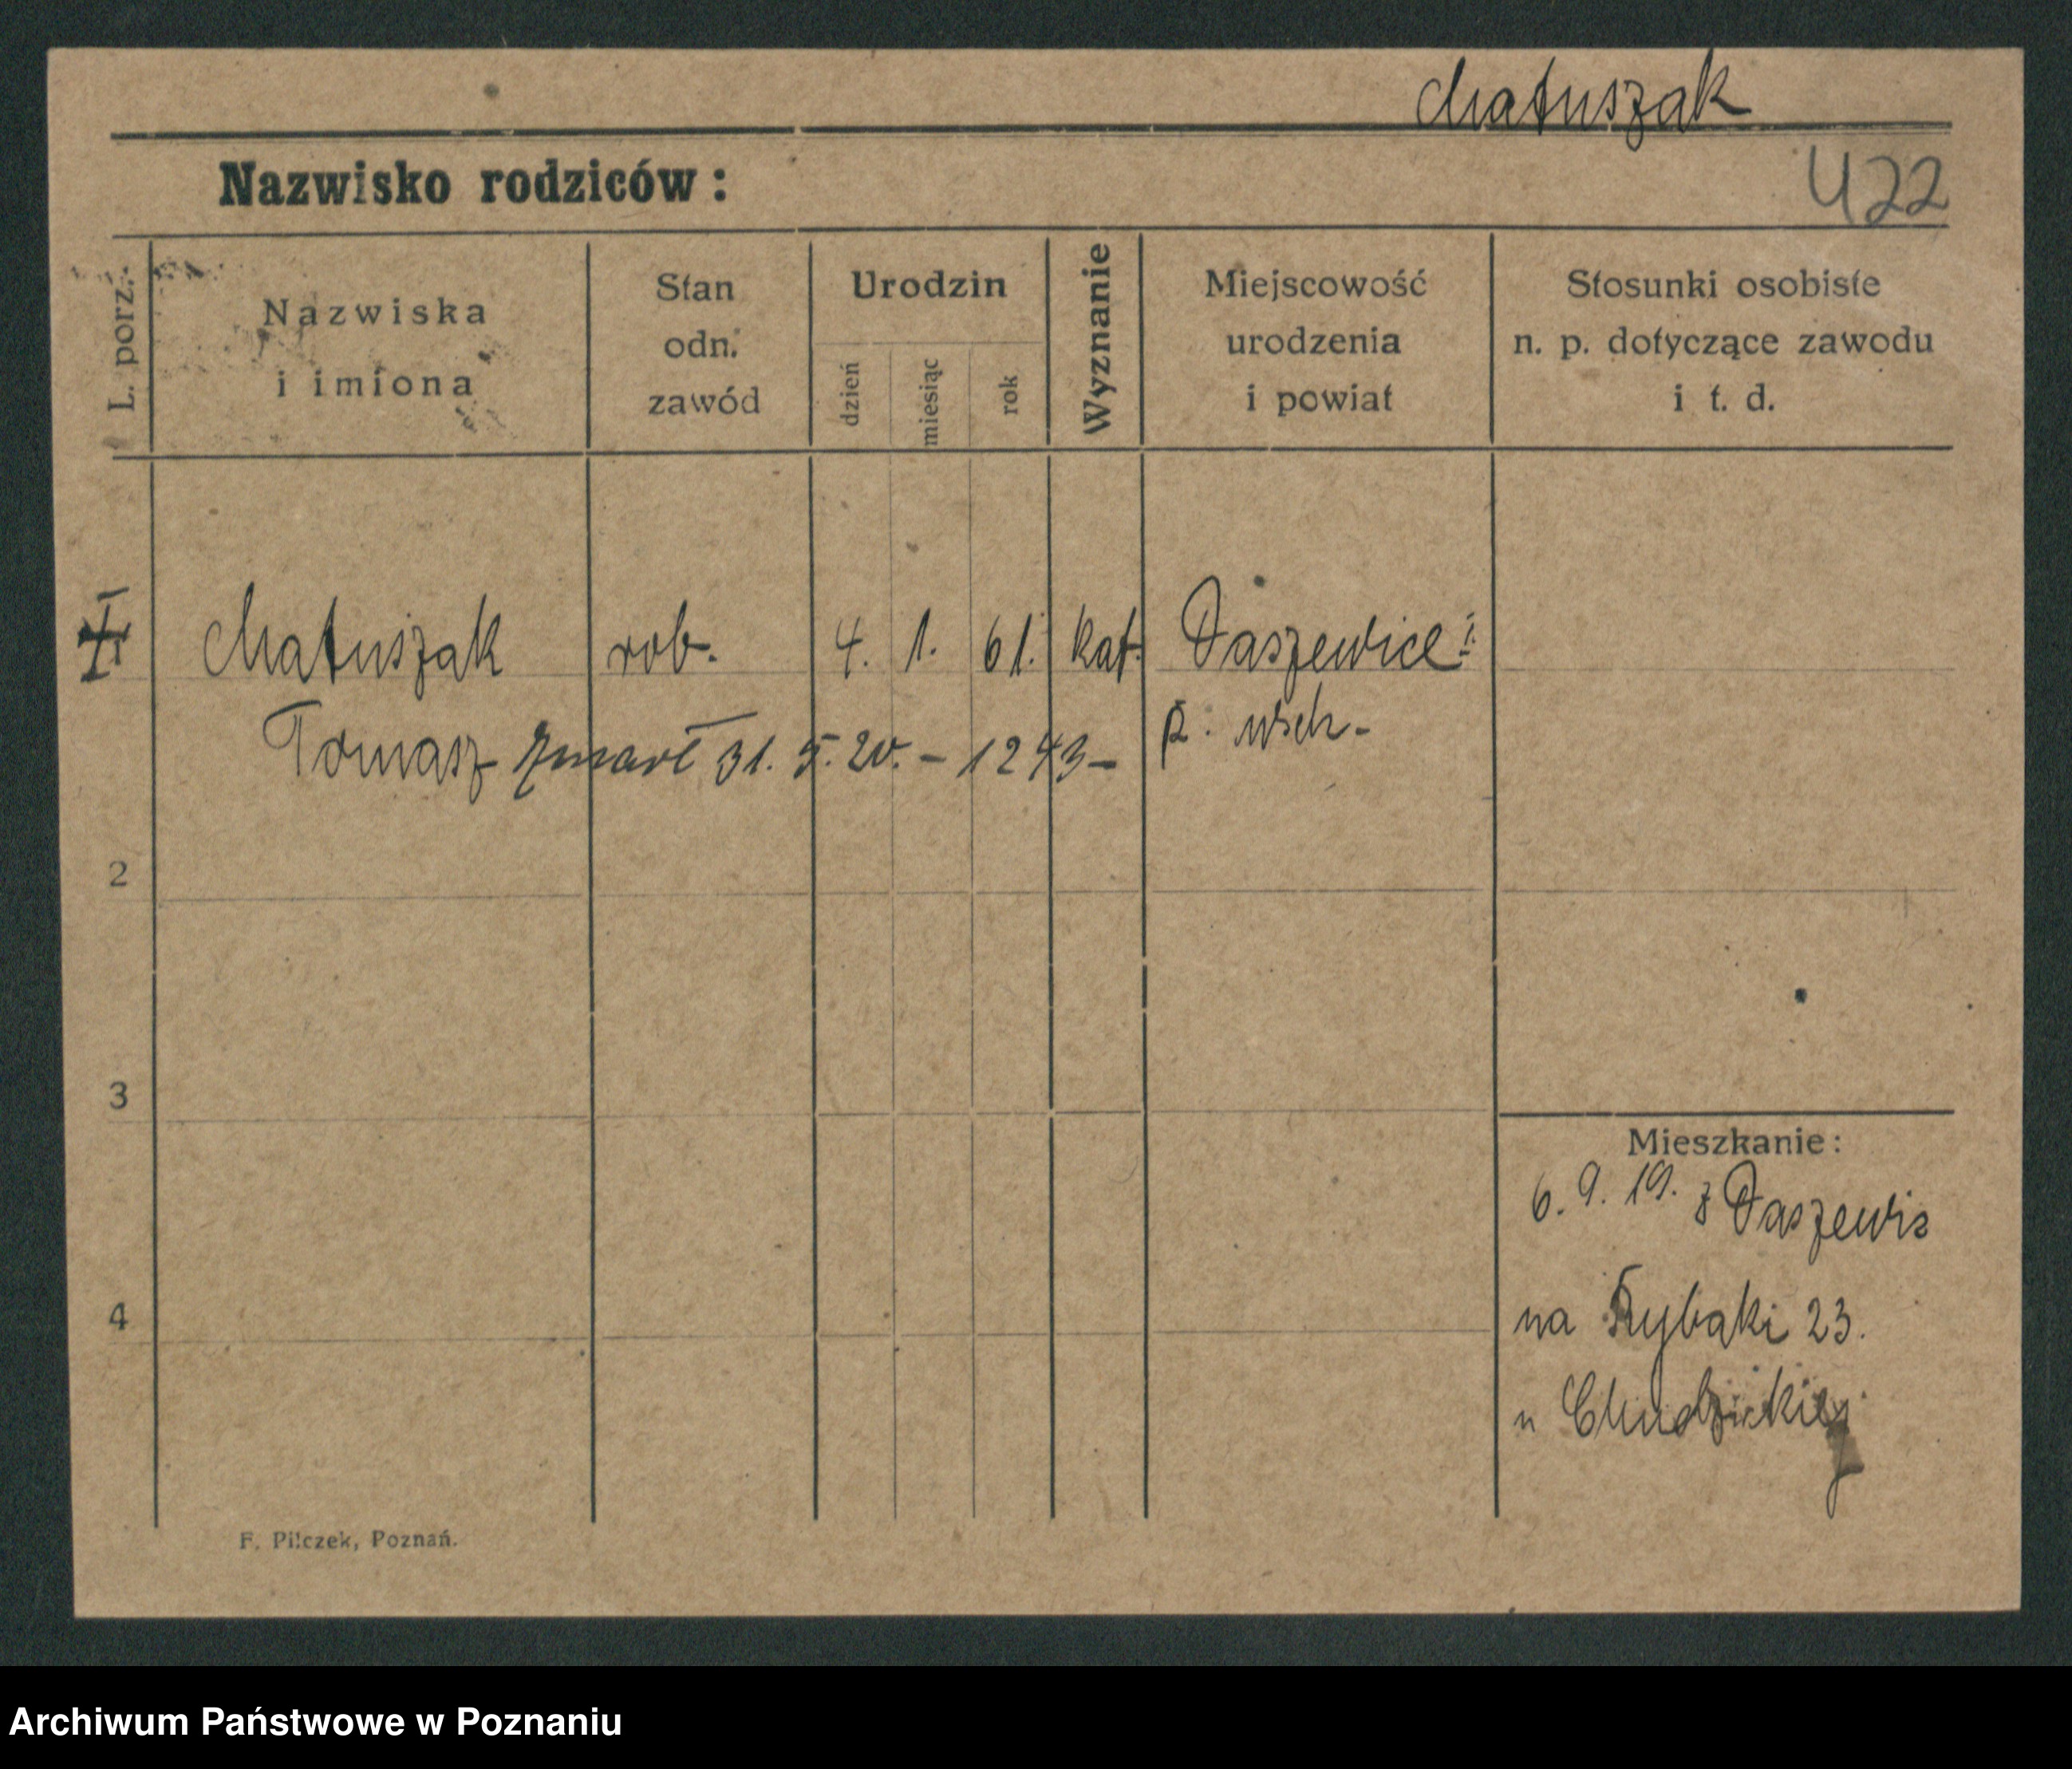 Matuszak
Nazwisko rodziców:
422
L. porz.
Nazwiska
i imiona
Stan
odn.
zawód
Urodzin
dzień
miesiąc
rok
Wyznanie
Miejscowość
urodzenia
i powiat
Stosunki osobiste
n. p. dotyczące zawodu
i t. d.
Matuszak rob. 4. 1. 61. kat. Daszewice
Tomasz zmarł 31. 5. 20. – 1243 –
p. wsch.
2
3
4
Mieszkanie:
6. 9. 19. z Daszewic
na Rybaki 23.
u
F. Pilczek, Poznań.
Archiwum Państwowe w Poznaniu